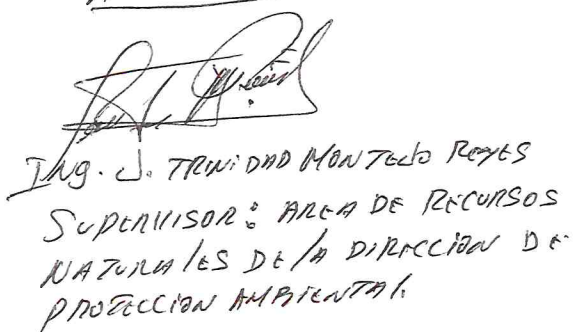 Ing. J. TRINIDAD MONTEJO REYES
SUPERVISOR: AREA DE RECURSOS
NATURALES DE LA DIRECCION DE
PROTECCION AMBIENTAL.